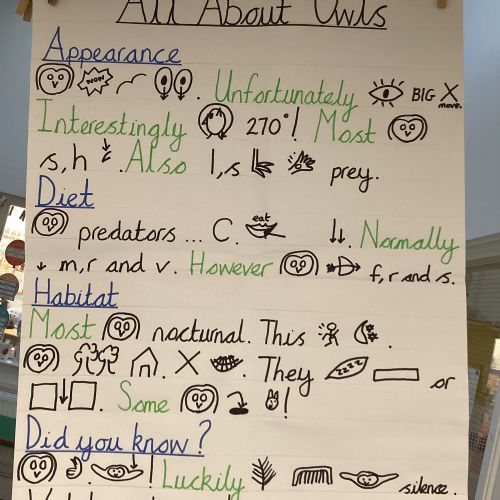 All About Owls
Appearance
WOW . Unfortunately BIG X move.
Interestingly 270°! Most
s,h . Also l,s prey.
Diet
predators ... C. eat ↓↓. Normally
↓ m,r and v. However f,r and s.
Habitat
Most nocturnal. This .
. X . They zzzz or
. Some !
Did you know?
. ! Luckily silence.